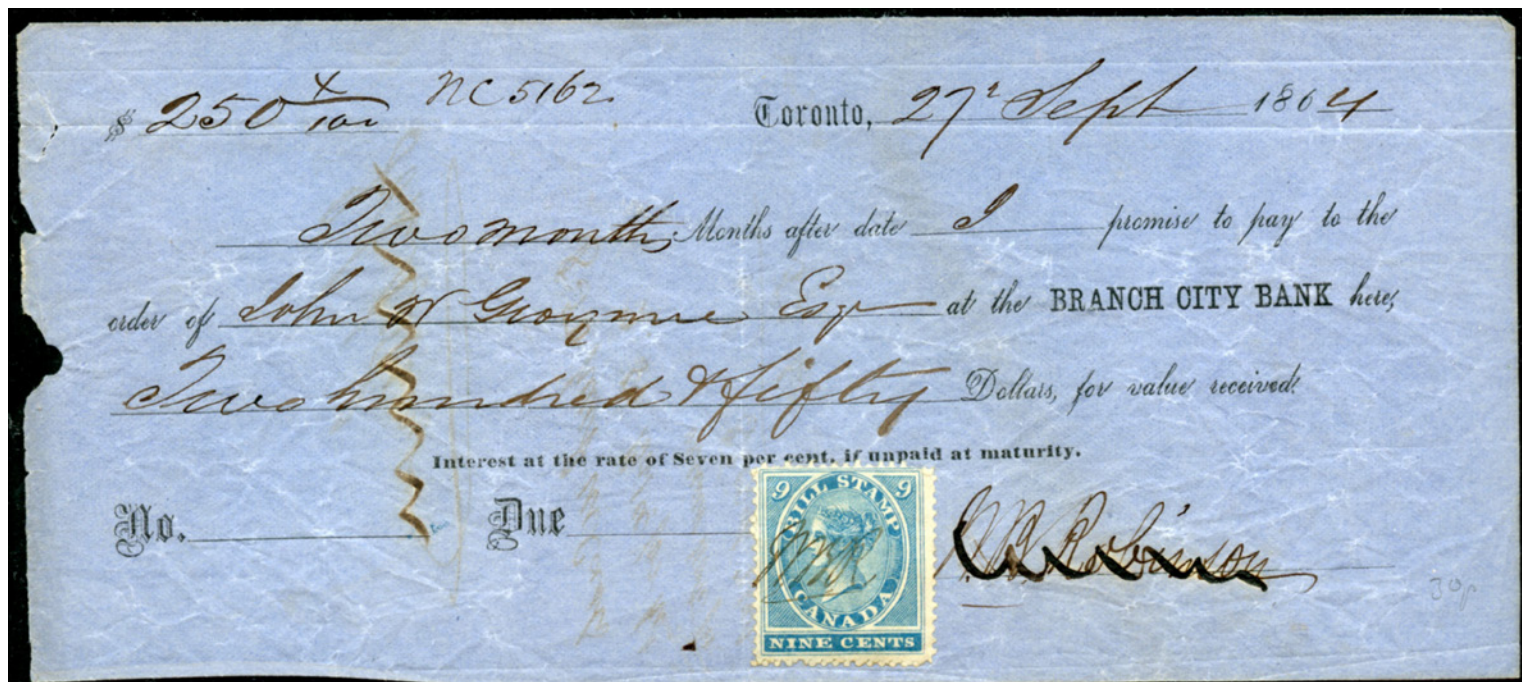 $ 250 x/100 NC5162 Toronto, 27 Sept 1864
Two months Months after date I promise to pay to the
order of John W Esqr at the BRANCH CITY BANK here,
Two hundred & fifty Dollars, for value received
Interest at the rate of Seven per cent. if unpaid at maturity.
No. Due
9 BILL STAMP 9
Robinson
CANADA
NINE CENTS